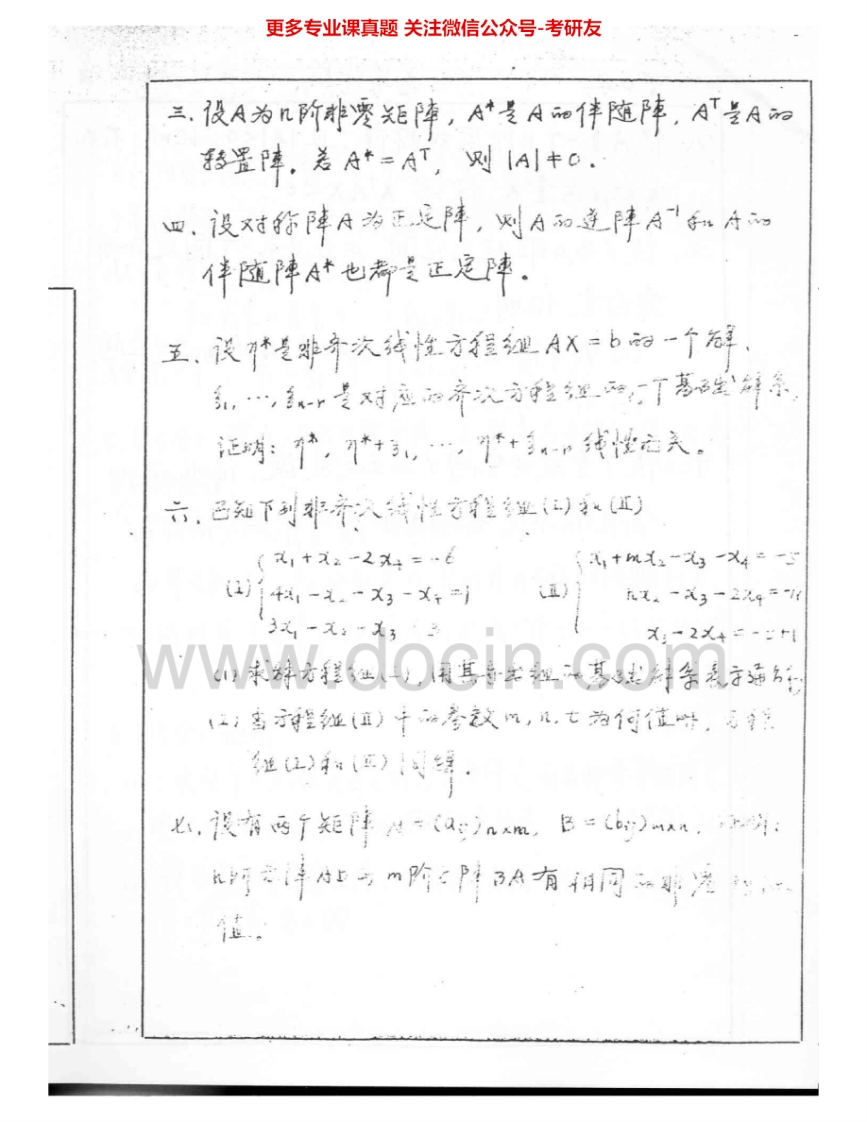 更多专业课真题 关注微信公众号-考研友
三、设A为n阶非零矩阵，A*是A的伴随阵，Aᵀ是A的
转置阵。若 A*=Aᵀ，则 |A|≠0.
四、设对称阵A为正定阵，则A的逆阵A⁻¹和A的
伴随阵A*也都是正定阵。
五、设η*是非齐次线性方程组 AX=b 的一个解、
ξ₁,…,ξₙ₋ᵣ 是对应的齐次方程组的一个基础解系，
证明：η*, η*+ξ₁, …, η*+ξₙ₋ᵣ 线性无关。
六、已知下列非齐次线性方程组(I)和(II)
x₁+x₂-2x₄=-6 x₁+mx₂-x₃-x₄=-5
(I) 4x₁-x₂-x₃-x₄=1 (II) nx₂-x₃-2x₄=-11
3x₁-x₂-x₃ 3 x₃-2x₄=-t+1
www.docin.com
(1) 求解方程组(I)，用其导出组的基础解系表示通解
(2) 当方程组(II)中的参数m,n,t为何值时，方程
组(I)和(II)同解.
七、设有两个矩阵 A=(aᵢⱼ)ₙₓₘ, B=(bᵢⱼ)ₘₓₙ, 证明：
n阶方阵AB与m阶方阵BA有相同的非零特征
值。